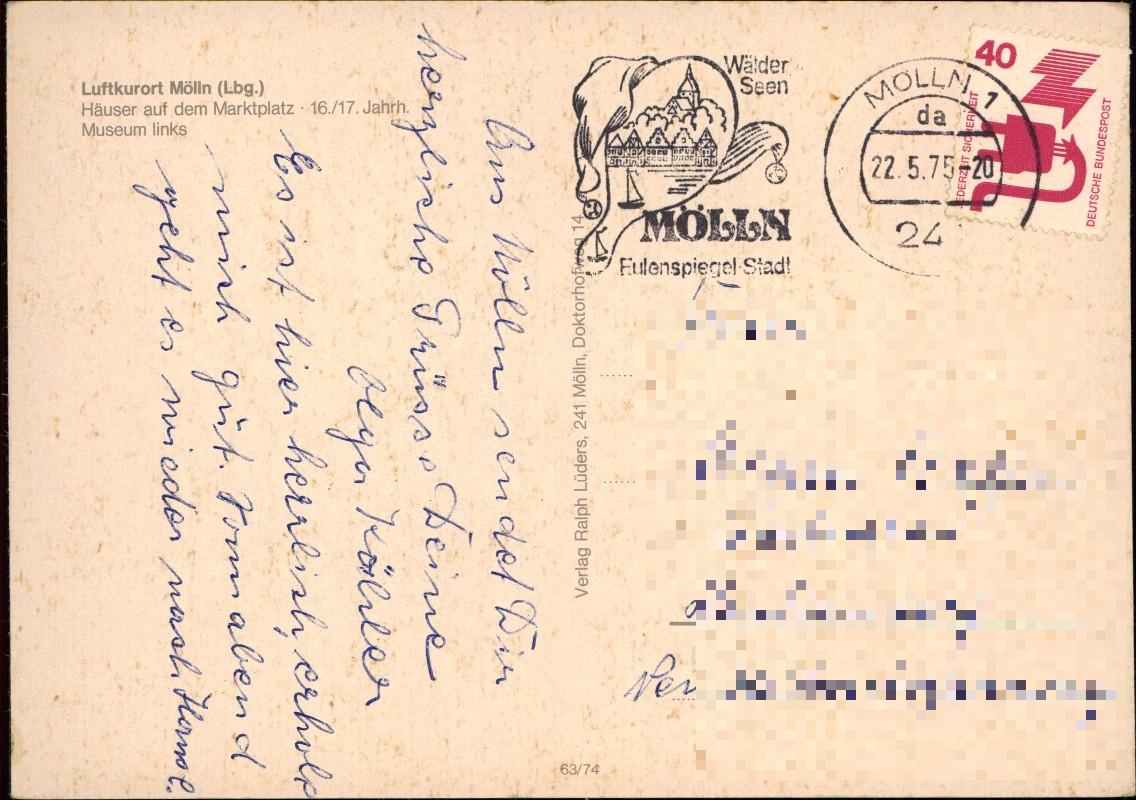 Luftkurort Mölln (Lbg.)
Häuser auf dem Marktplatz · 16./17. Jahrh.
Museum links
Wälder
Seen
MÖLLN
Eulenspiegel-Stadt
MÖLLN 1
da
22.5.75-20
24
40
JEDERZEIT SICHERHEIT
DEUTSCHE BUNDESPOST
Aus Mölln sendet Dir
herzliche Grüsse Deine
Olga Köhler
Es ist hier herrlich, erhole
mich gut. Sonnabend
geht es wieder nach Hause.
Verlag Ralph Lüders, 241 Mölln, Doktorhofweg 14
63/74